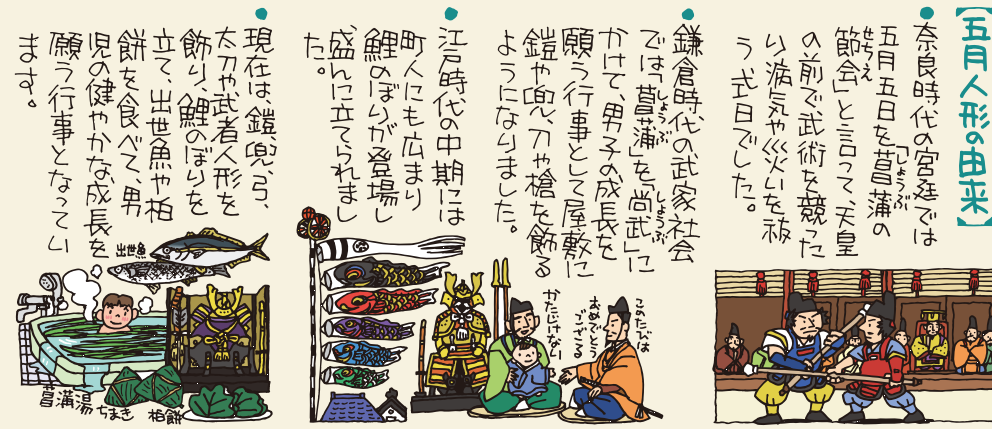 【五月人形の由来】
●奈良時代の宮廷では
五月五日を「菖蒲の
しょうぶ
節会」と言って、天皇
せちえ
の前で武術を競った
り、病気や災いを祓
う式日でした。
●鎌倉時代の武家社会
では「菖蒲」を「尚武」に
しょうぶ
しょうぶ
かけて、男子の成長を
願う行事として屋敷に
鎧や兜、刀や槍を飾る
ようになりました。
●江戸時代の中期には
町人にも広まり
鯉のぼりが登場し
盛んに立てられまし
た。
●現在は、鎧、兜、弓、
太刀や武者人形を
飾り、鯉のぼりを
立て、出世魚や柏
餅を食べて、男
児の健やかな成長を
願う行事となってい
ます。
このたびは
おめでとう
ござる
かたじけない
出世魚
菖蒲湯
ちまき
柏餅